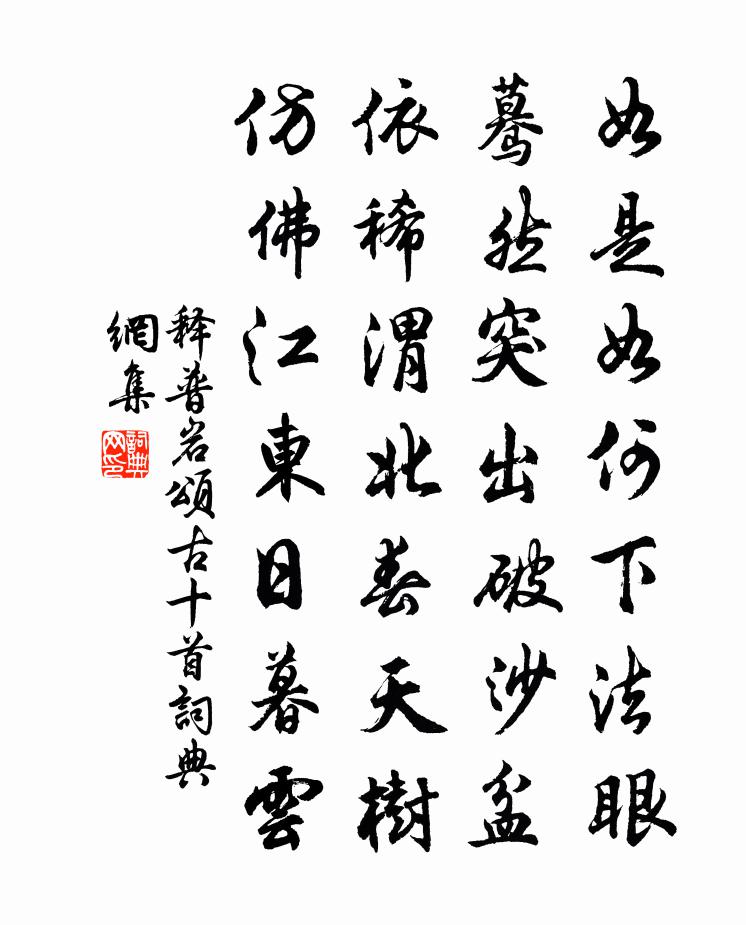 如是如何下法眼
驀然突出破沙盆
依稀渭北春天樹
仿佛江東日暮雲
释普岩頌古十首詞典
網集
詞典
网印